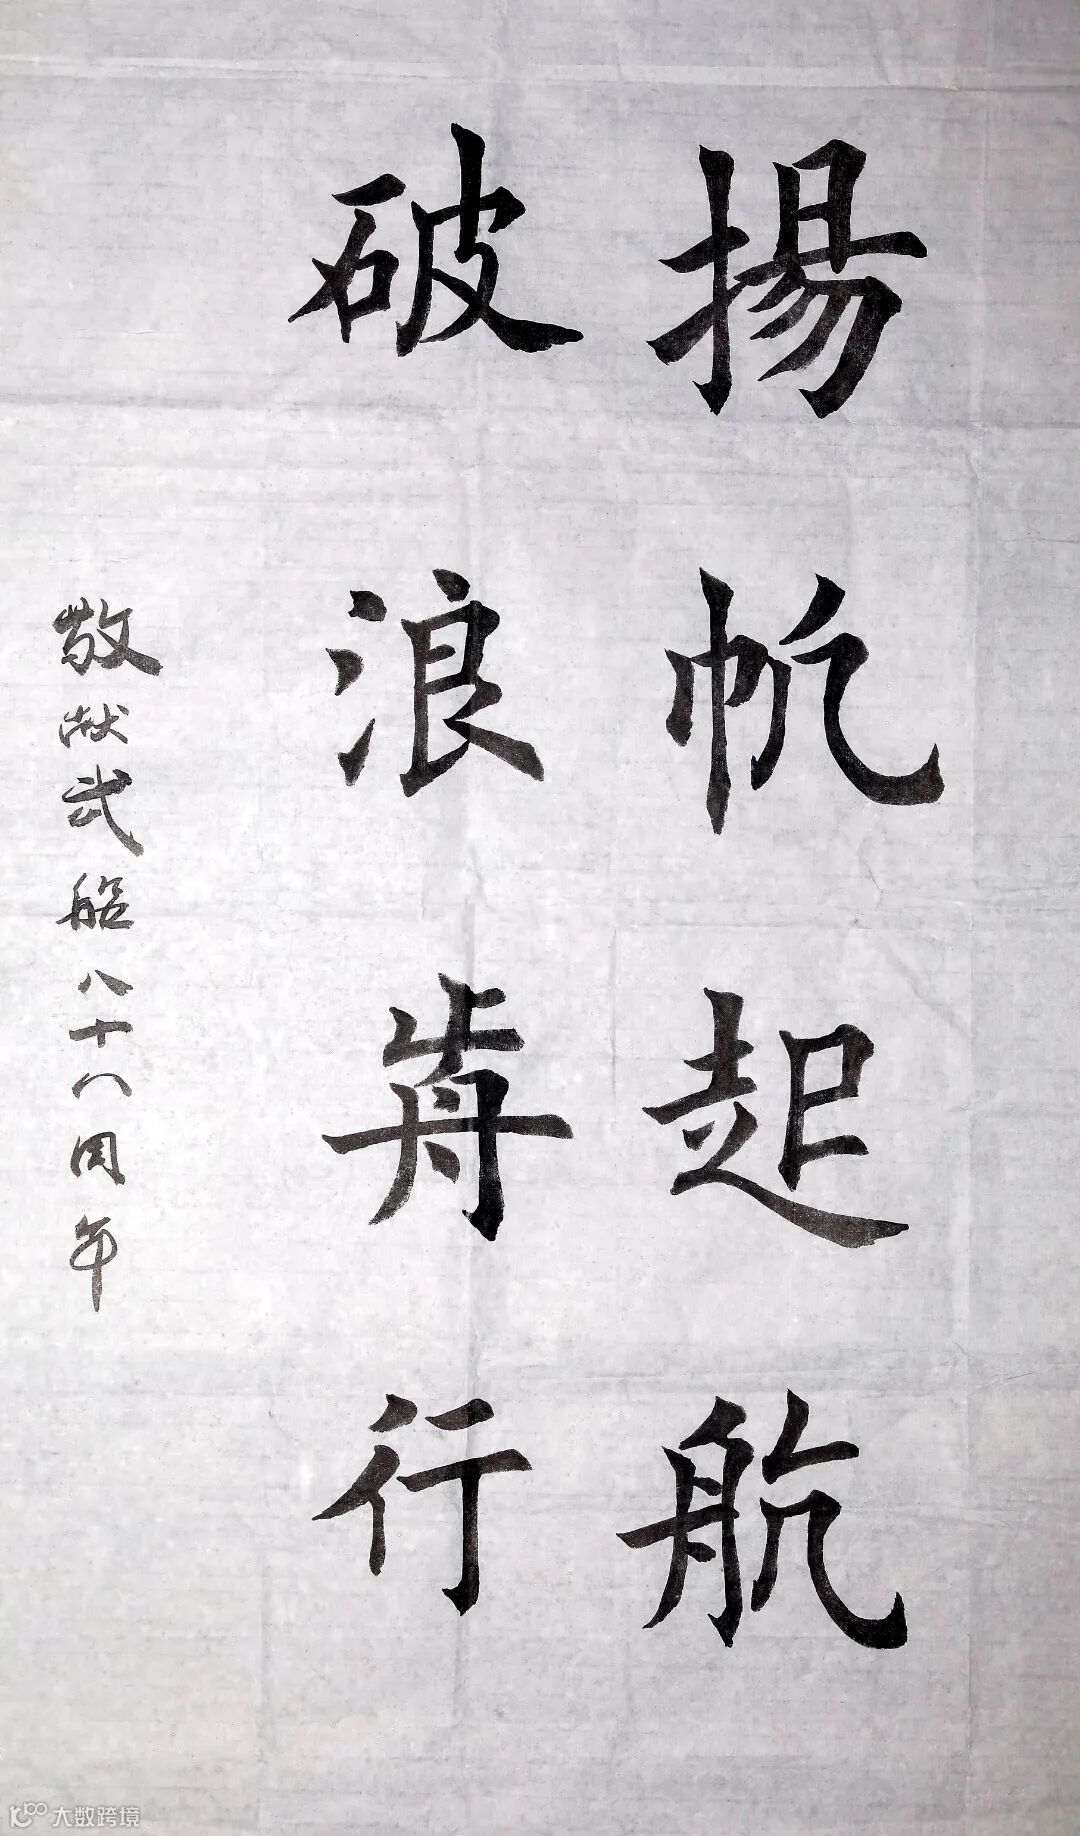 揚帆起航
破浪歬行
敬献武船八十八周年
大数跨境